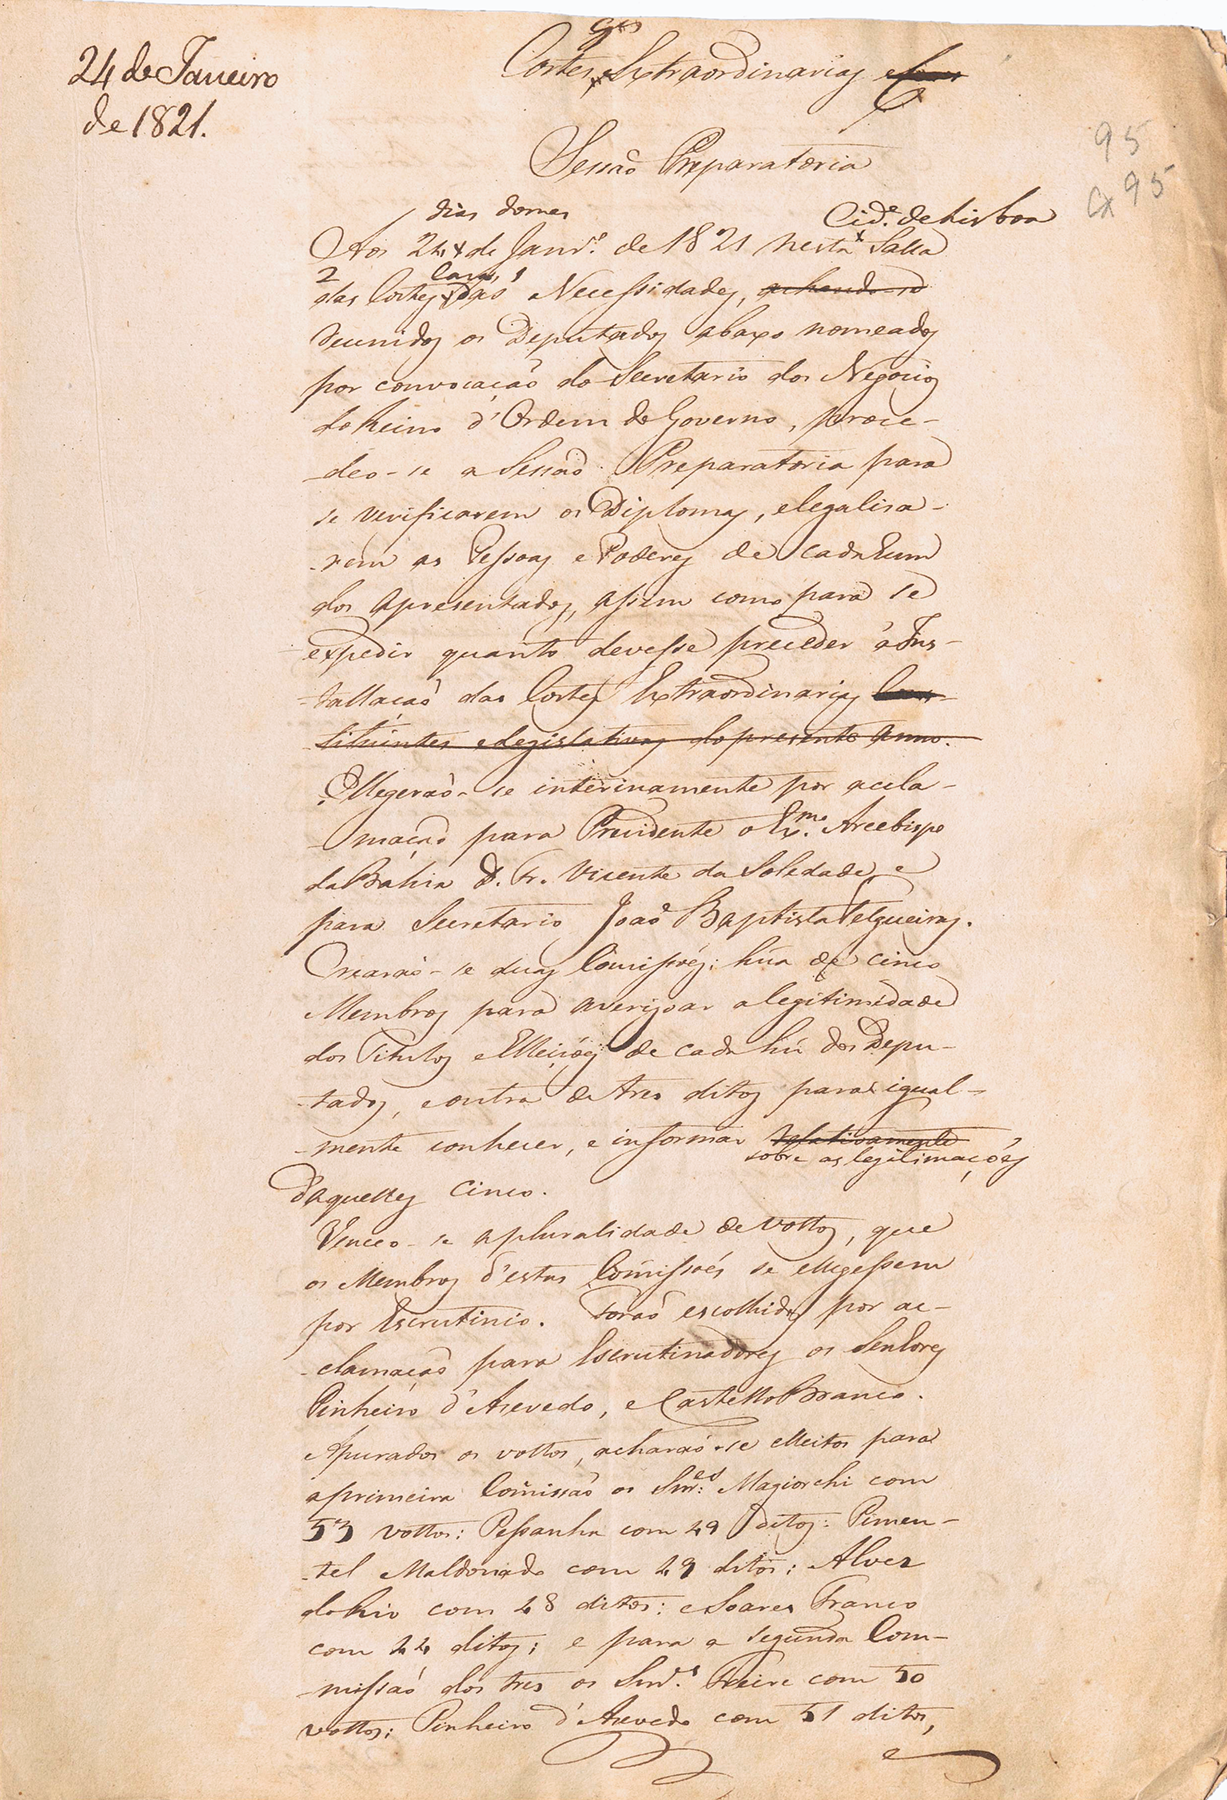 24 de Janeiro
de 1821.
Cortes Extraordinarias
95
Cx 95
Sessaõ Preparatoria
dias do mes
Cid.e de Lisboa
Aos 24 de Janr.o de 1821 nesta Salla
das Cortes das Necessidades, achando-se
reunidos os Deputados abaxo nomeados
por convocaçaõ do Secretario dos Negocios
do Reino d'Ordem do Governo, proce-
deo-se a Sessaõ Preparatoria para
se verificarem os Diplomas, e legalisa-
-rem as Pessoas e Poderes de cada hum
dos apresentados, assim como para se
expedir quanto devesse preceder á Ins-
-tallacaõ das Cortes Extraordinarias Cons-
titúintes e Legislativas do presente anno.
Ellegeraõ-se interinamente por acla-
-maçaõ para Presidente o Ex.mo Arcebispo
da Bahia D. Fr. Vicente da Soledade, e
para Secretario Joaõ Baptista Felgueiras.
Crearaõ-se duas Comissóes: húa de cinco
Membros para averigoar a legitimidade
dos Titulos e Elleiçóes de cada hú dos Depu-
-tados, e outra de tres ditos para igual-
-mente conhecer, e informar relativamente
sobre as legitimaçóes
d'aquelles cinco.
Venceo-se a pluralidade de vottos, que
os Membros d'estas Comissóes se ellegessem
por Escrutinio. Foraõ escolhidos por ac-
-clamaçaõ para Escrutinadores os Senhores
Pinheiro d'Azevedo, e Castello Branco.
Apurados os vottos, acharaõ-se elleitos para
a primeira Comissaõ os Snr.es Magiorchi com
53 vottos: Pessanha com 49 ditos: Pimen-
-tel Maldonado com 49 ditos; Alves
do Rio com 48 ditos: e Soares Franco
com 44 ditos; e para a segunda Com-
-missaõ dos tres os Snr.s Freire com 50
vottos; Pinheiro d'Azevedo com 51 ditos,
e